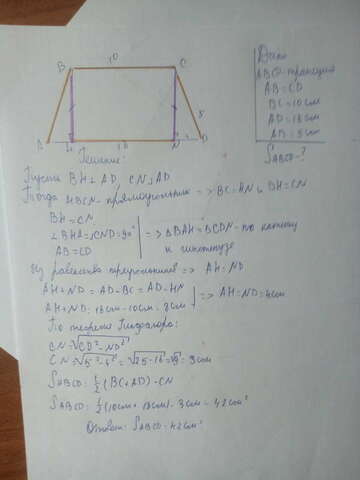 10
B C
Дано:
ABCD - трапеция
AB = CD
BC = 10 см
AD = 18 см
AB = 5 см
SABCD - ?
5
A H 18 N D
Решение:
Пусть BH ⊥ AD, CN ⊥ AD
Тогда HBCN - прямоугольник => BC = HN и BH = CN
BH = CN
∠BHA = ∠CND = 90° => ΔBAH = ΔCDN - по катету
AB = CD и гипотенузе
Из равенства треугольников => AH = ND
AH + ND = AD - BC = AD - HN
AH + ND = 18см - 10см = 8см => AH = ND = 4см
По теореме Пифагора:
CN = √CD² - ND²
CN = √5² - 4² = √25 - 16 = √9 = 3см
SABCD = 1/2 (BC + AD) · CN
SABCD = 1/2 (10см + 18см) · 3см = 42см²
Ответ: SABCD = 42см²